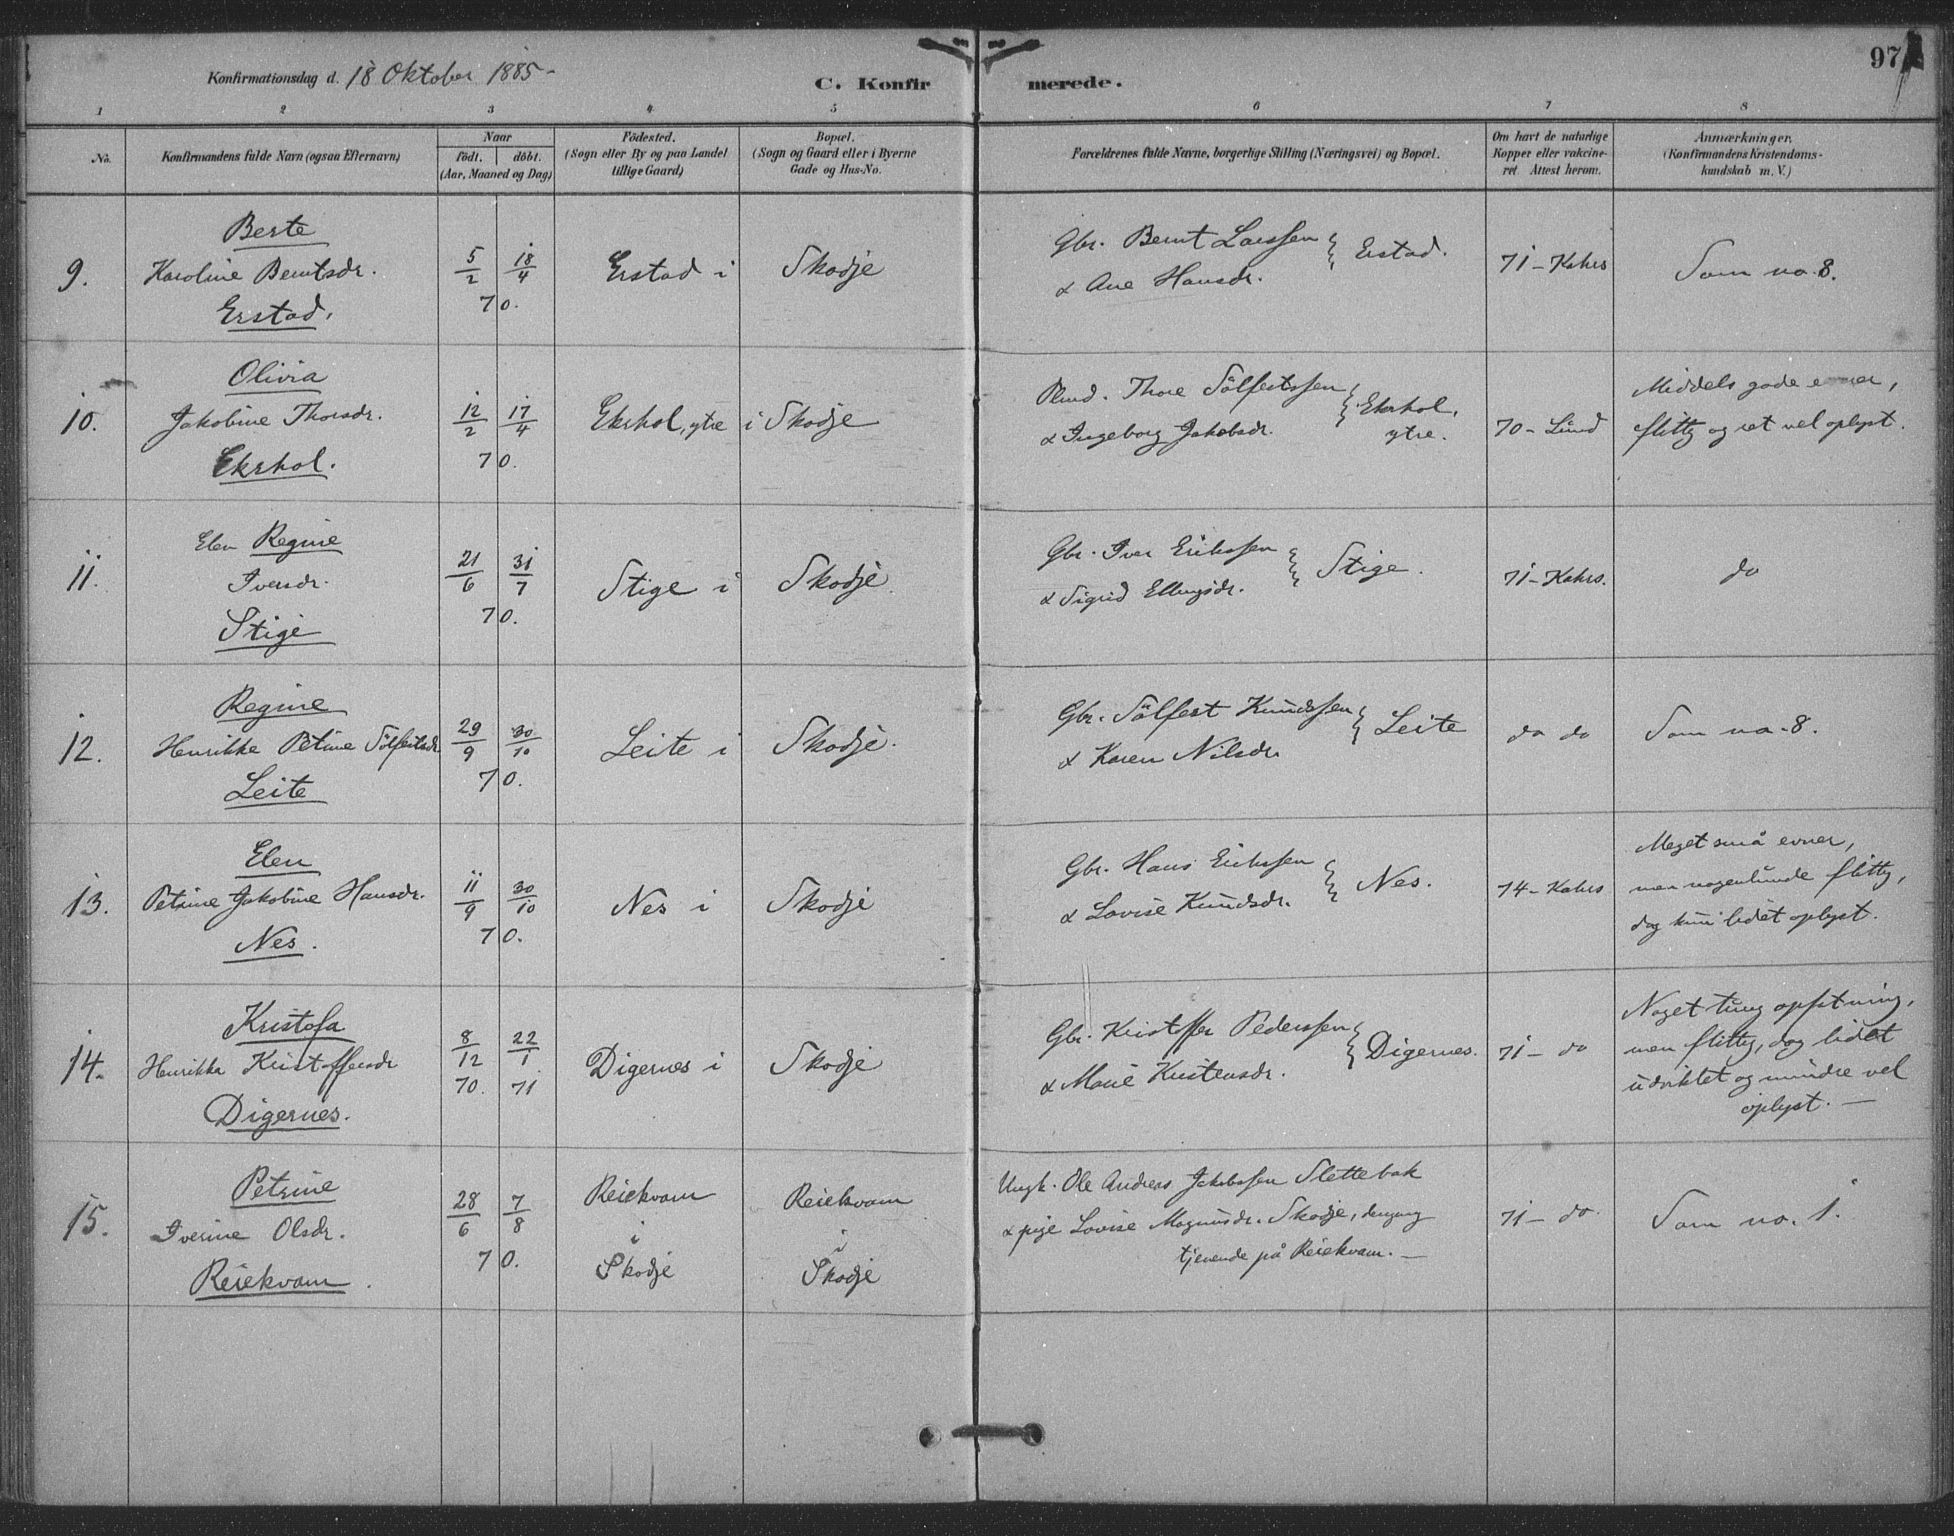 97
Konfirmationsdag d. 18 Oktober 1885-
C. Konfirmerede.
1 2 3 4 5 6 7 8
No.
Konfirmandens fulde Navn (ogsaa Efternavn)
Naar
födt. döbt.
(Aar, Maaned og Dag)
Födested.
(Sogn eller By og paa Landet
tillige Gaard)
Bopæl.
(Sogn og Gaard eller i Byerne
Gade og Hus-No.
Forældrenes fulde Navne, borgerlige Stilling (Næringsvei) og Bopæl.
Om havt de naturlige
Kopper eller vakcine-
ret. Attest herom.
Anmærkninger.
(Konfirmandens Kristendoms-
kundskab m. V.)
9.
Berte
Karoline Berntsdr.
Erstad.
5/2 18/4
70.
Erstad i
Skodje
Gbr. Bernt Larssen
& Ane Hansdr.
Erstad.
71 - Kahrs
Som no. 8.
10.
Olivia
Jakobine Thorsdr.
Ekrhol.
12/2 17/4
70.
Ekrhol, ytre
i Skodje
Thore Sölfestssen
& Ingeborg Jakobsdr.
Ekrhol,
ytre.
70 - Lund
Middels gode evner,
flittig og ret vel oplyst.
11.
Elen Regine
Iversdr.
Stige
21/6 31/7
70.
Stige i
Skodje
Gbr. Iver Erikssen
& Sigrid Ellingsdr.
Stige.
71 - Kahrs.
do
12.
Regine
Henrikke Petine Sölfestsdr.
Leite
29/9 30/10
70.
Leite i
Skodje.
Gbr. Sölfest Knudssen
& Karen Nilsdr.
Leite
do do
Som no. 8.
13.
Elen
Petrine Jakobine Hansdr.
Nes.
11/9 30/10
70.
Nes i
Skodje
Gbr. Hans Erikssen
& Lovise Knudsdr.
Nes.
74 - Kahrs
Meget små evner,
men nogenlunde flittig,
dog kun lidet oplyst.
14.
Kristofa
Henrikka Kristoffersdr
Digernes.
8/12 22/1
70. 71
Digernes i
Skodje
Gbr. Kristoffer Pederssen
& Marie Kristensdr.
Digernes.
71 - do
Noget tung opfatning,
men flittig, dog lidet
udviklet og mindre vel
oplyst. -
15.
Petrine
Iverine Olsdr.
Reiekvam.
28/6 7/8
70.
Reiekvam
i
Skodje
Reiekvam
i
Skodje
Ungk. Ole Andreas Jakobssen Slettebak
& pige Lovise Magnusdr. Skodje, dengang
tjenende på Reiekvam. -
71 - do.
Som no. 1.